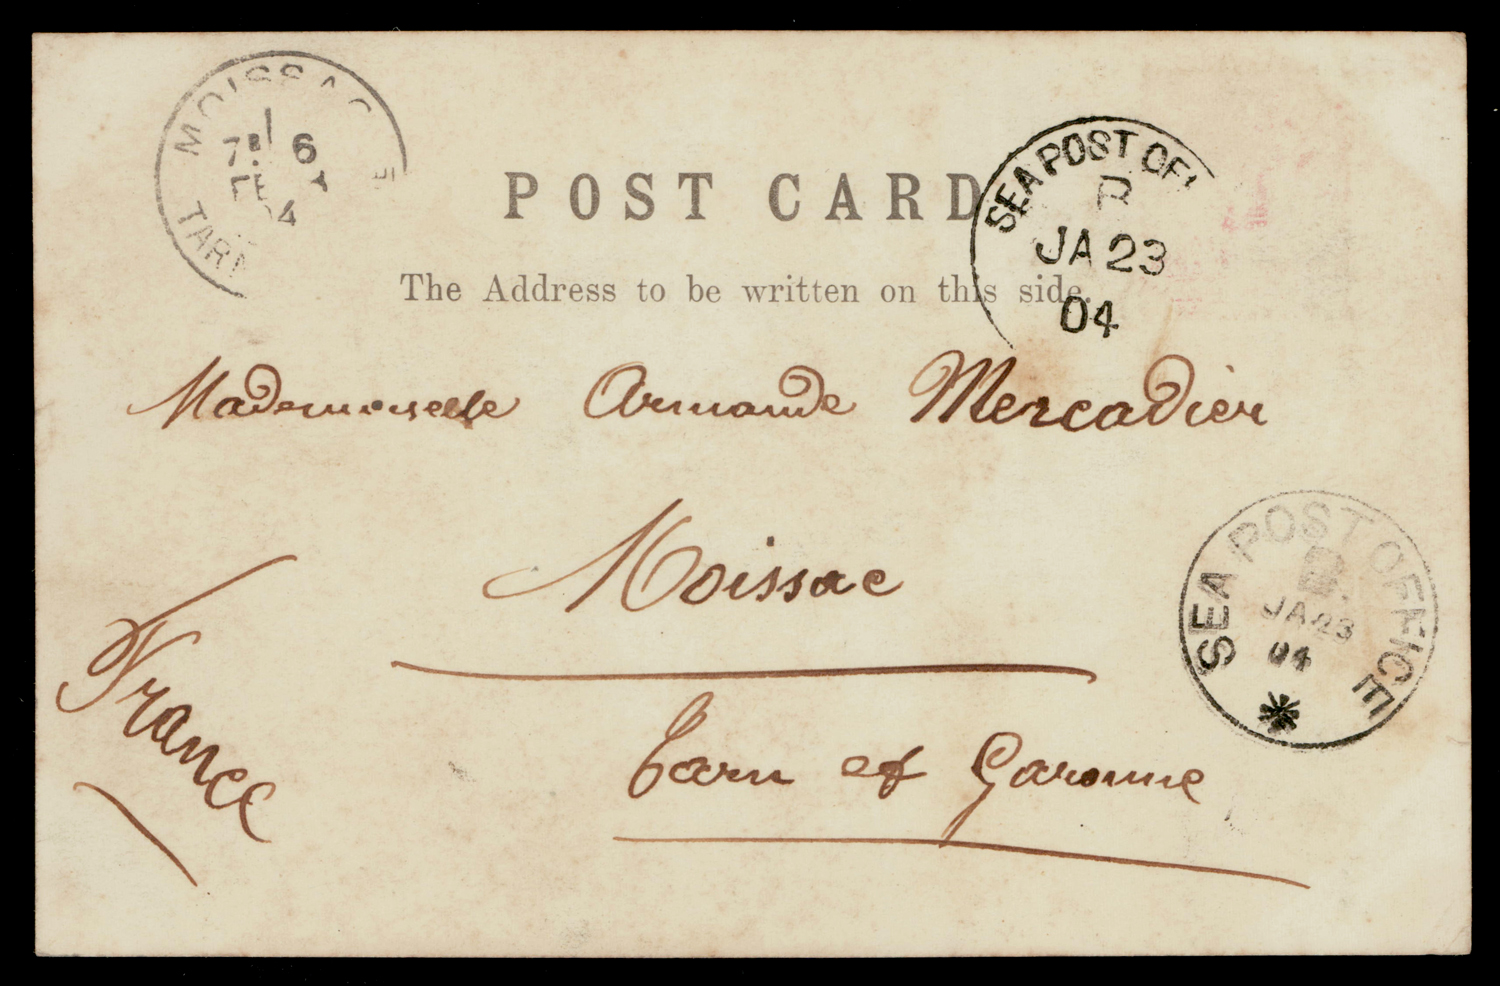 MOISSAC
7 6
FE
04
TAR
POST CARD
The Address to be written on this side.
SEA POST OF
B
JA 23
04
Mademoiselle Armande Mercadier
Moissac
France
Tarn et Garonne
SEA POST OFFICE
B.
JA 23
04